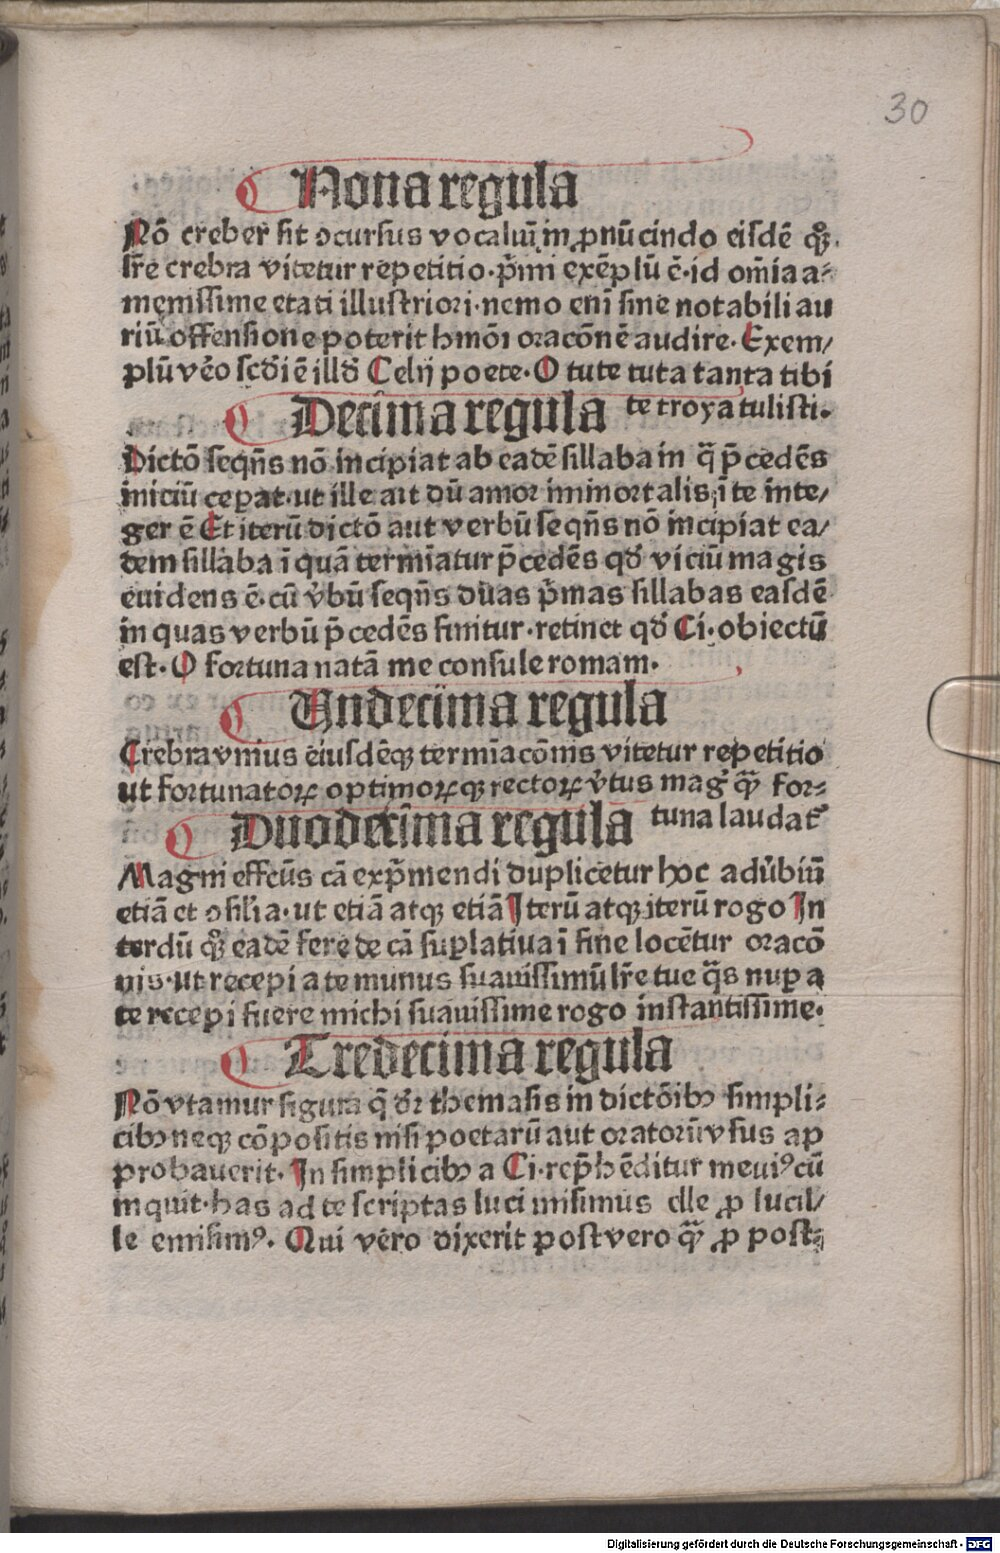 30
Nona regula
Nō creber̄ sit ɔcursus vocaluȳ in ꝓnūciādo eisdē qꝫ.
lr̄e crebra vitetur repetitio·p̄mi exēplū ē·id om̄ia a⸗
menissime etati illustriori·nemo eni̅ sine notabili au
riū offensione poterit hmōi oracōnē audire·Exem/
plū v̄o scd̄i ē illd̄ Celij poete·O tute tuta tanta tibi
te troya tulisti.
Decima regula
Dictō seqn̄s nō incipiat ab eadē sillaba in q̄ p̄cedēs
iniciū ceꝑat·ut ille ait dū amor inmortalis ī te inte/
ger ē Et iterū dictō aut verbū seqn̄s nō incipiat ea/
dem sillaba ī quā termīatur p̄cedēs qd̄ viciū magis
euidens ē·cū v̄bū seqn̄s duas p̄mas sillabas easdē
in quas verbū p̄cedēs finitur·retinet qd̄ Ci·obiectū
est·O fortuna natā me consule romam.
Undecima regula
Crebra vnius eiusdēqꝫ termīacōnis vitetur repetitio
ut fortunatoꝝ optimoꝝqꝫ rectoꝝ v̄tus mag̓ qꝫ for⸗
tuna laudat̄
Duodecima regula
Magni effcūs cā exp̄mendi duplicetur hoc adūbiū
etiā et ɔsilia·ut etiā atqꝫ etiā Iterū atqꝫ iterū rogo In
terdū qꝫ eadē fere de cā suꝑlatiua ī fine locētur oracō
nis·ut recepi a te munus suauissimū lr̄e tue q̄s nuꝑ a
te recepi fuere michi suauissime rogo instantissime.
Tredecima regula
Nō vtamur figura q̄ dr̄ themasis in dictōibꝫ simpli⸗
cibꝫ neqꝫ cōpositis nisi poetarū aut oratorū vsus ap
probauerit·In simplicibꝫ a Ci·rep̄hēditur meuiꝰ cū
inquit·has ad te scriptas luci misimus elle ꝓ lucil/
le emisimꝰ. Qui vero dixerit post vero qꝫ ꝓ post⸗
Digitalisierung gefördert durch die Deutsche Forschungsgemeinschaft - DFG